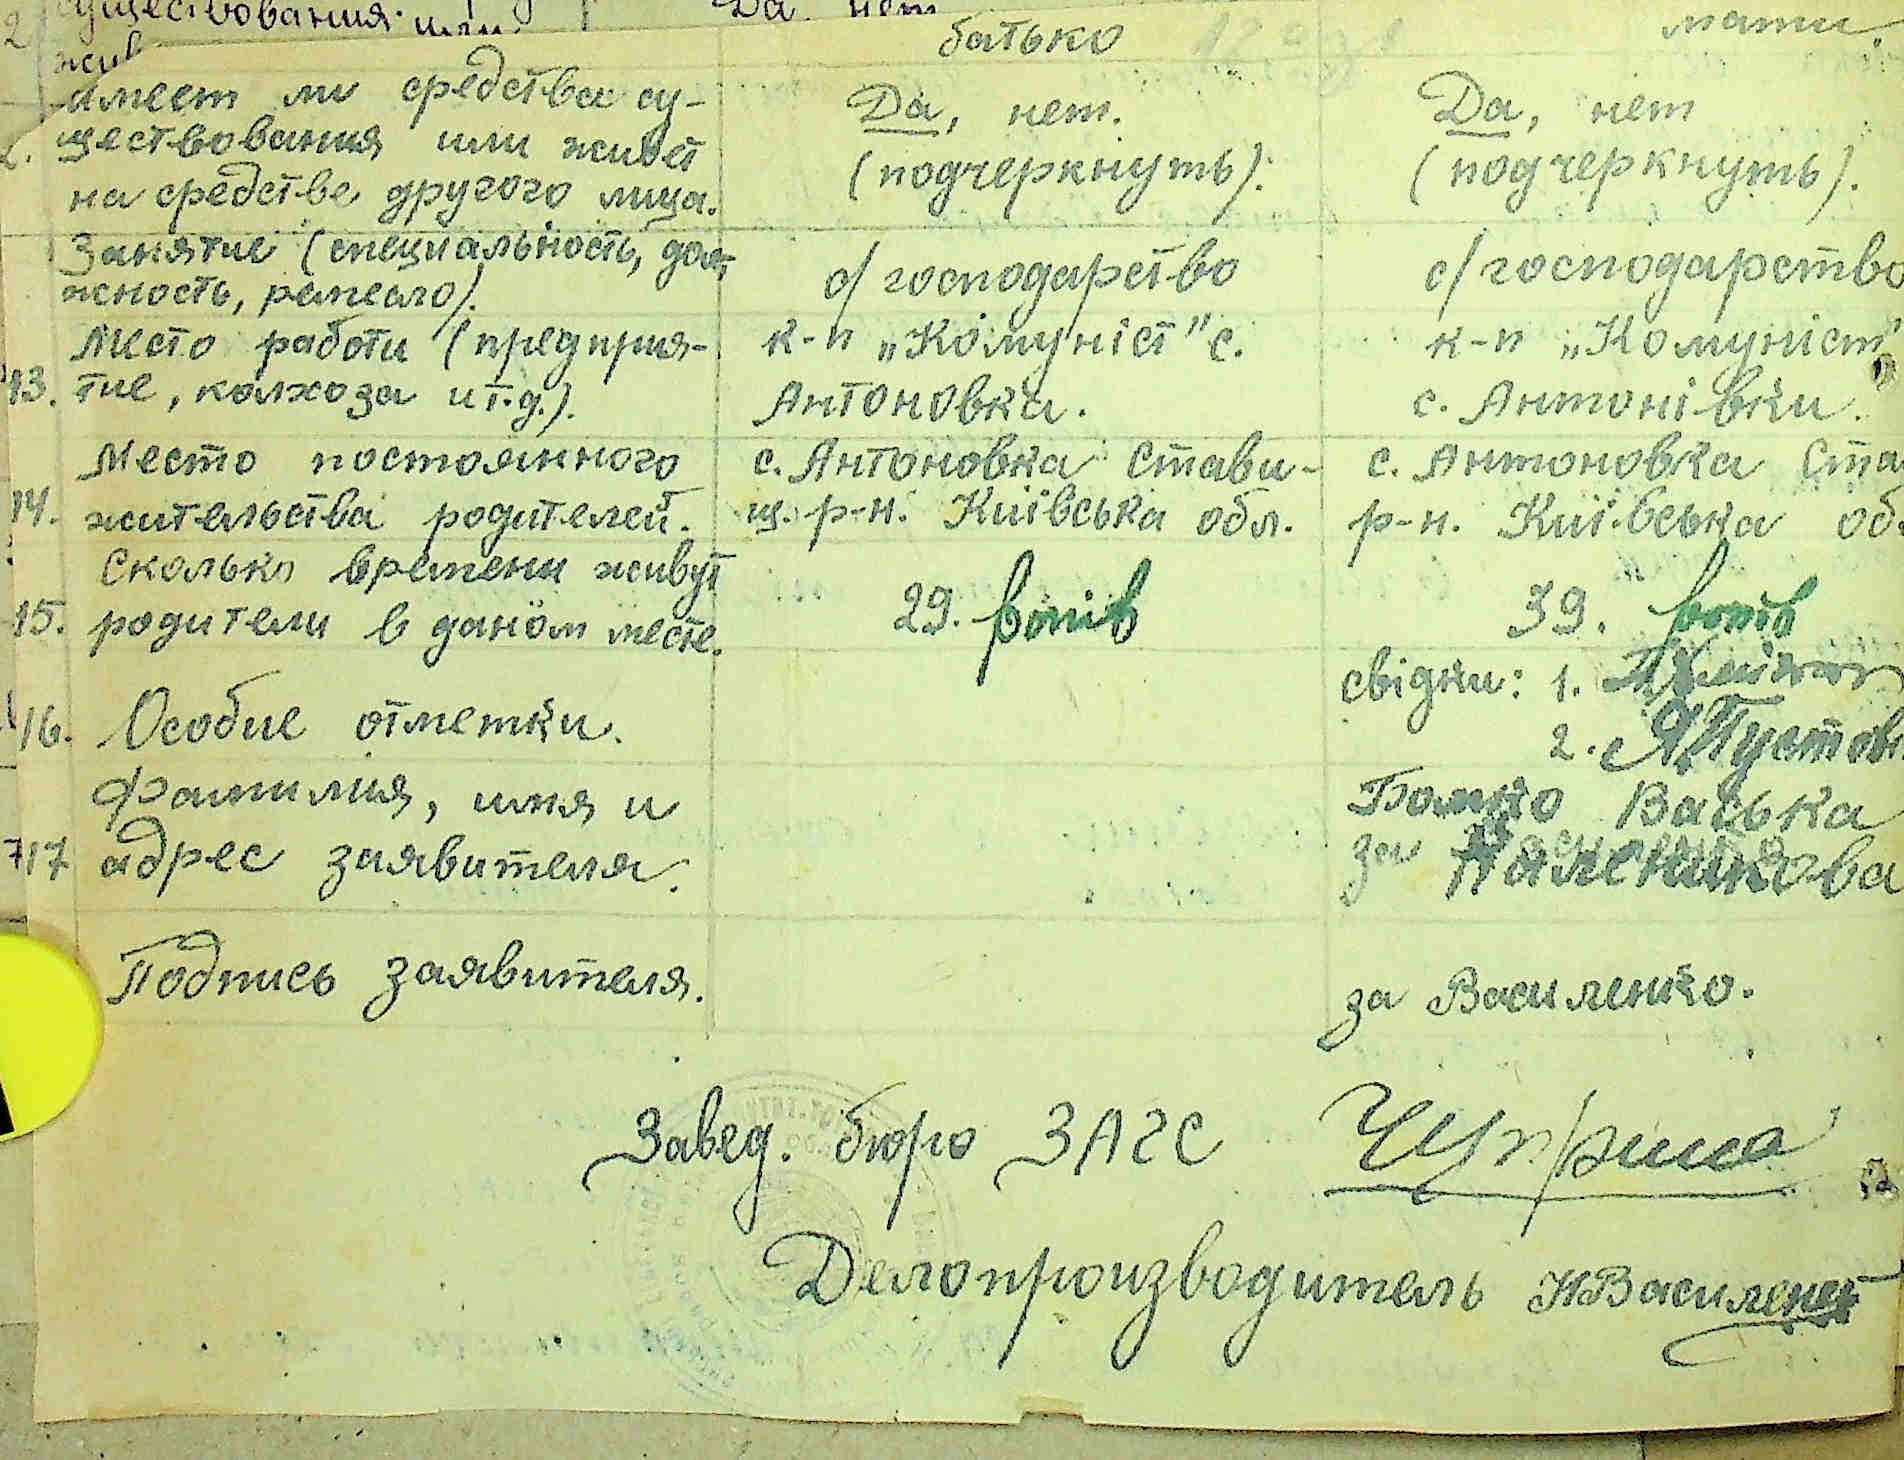 существования или
Да, нет
батько
мати.
имеет ли средства су-
ществования или живет
на средстве другого лица.
Да, нет.
(подчеркнуть).
Да, нет
(подчеркнуть).
Занятие (специальность, дол-
жность, ремесло).
с/господарство
с/господарство
13. Место работи (предприя-
тие, колхоза и т.д.).
к-п „Комуніст" с.
Антоновка.
к-п „Комуніст"
с. Антонівки.
14. Место постоянного
жительства родителей.
с. Антоновка Стави-
щ. р-н. Київська обл.
с. Антоновка Ста
р-н. Київська об
15. Сколько времени живут
родители в даном месте.
29. років
39. років
16. Особие отметки.
свідки: 1.
2. Я Пустов
17 Фамилия, имя и
адрес заявителя.
Васька
за
Подпись заявителя.
за Василенко.
Завед. бюро ЗАГС
Делопроизводитель НВасиленко